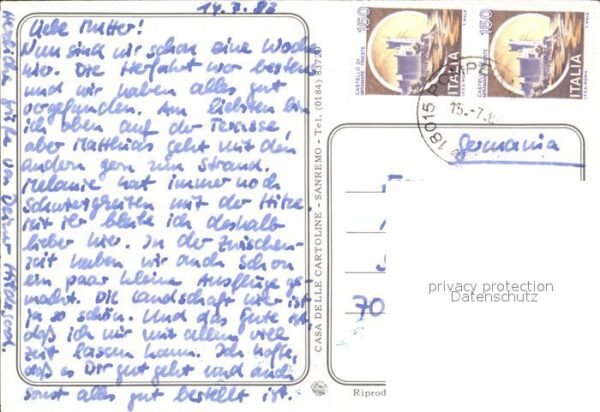 14.7.83
Liebe Mutter!
Nun sind wir schon eine Woche
hier. Die Herfahrt war bestens
und wir haben alles gut
vorgefunden. Am liebsten bin
ich oben auf der Terrasse,
aber Matthias geht mit den
andern gern zum Strand.
Melanie hat immer noch
Schwierigkeiten mit der Hitze.
Mit ihr bleibe ich deshalb
lieber hier. In der Zwischen-
zeit haben wir auch schon
ein paar kleine Ausflüge ge-
macht. Die Landschaft hier ist
ja so schön. Und das Gute ist
daß ich mir mit allem viel
Zeit lassen kann. Ich hoffe,
daß es Dir gut geht und auch
sonst alles gut bestellt ist.
Herzliche Grüße von Deiner
CASA DELLE CARTOLINE - SANREMO - Tel. (0184)
150
CASTELLO DI
MIRAMARE TRIESTE
ITALIA
150
CASTELLO DI
MIRAMARE TRIESTE
ITALIA
18015
15.-7.8
Germania
70
privacy protection
Datenschutz
Riprod